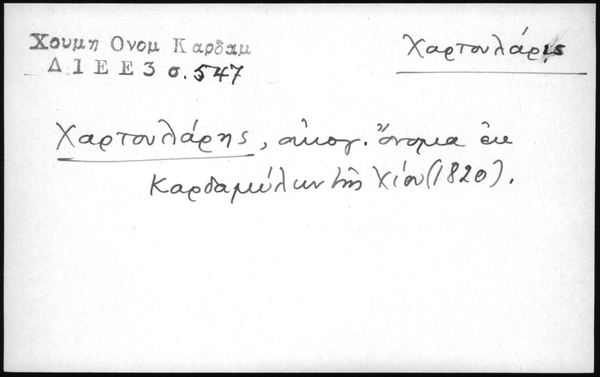 Χουμη Ονομ Καρδαμ
Δ Ι Ε Ε 3 σ. 547
Χαρτουλάρις
Χαρτουλάρης, οἰκογ. ὄνομα ἐκ
Καρδαμύλων τῆς Χίου (1820).